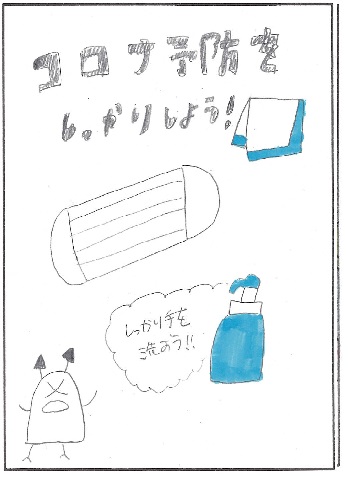 コロナ予防を
しっかりしよう!
しっかり手を
洗おう!!